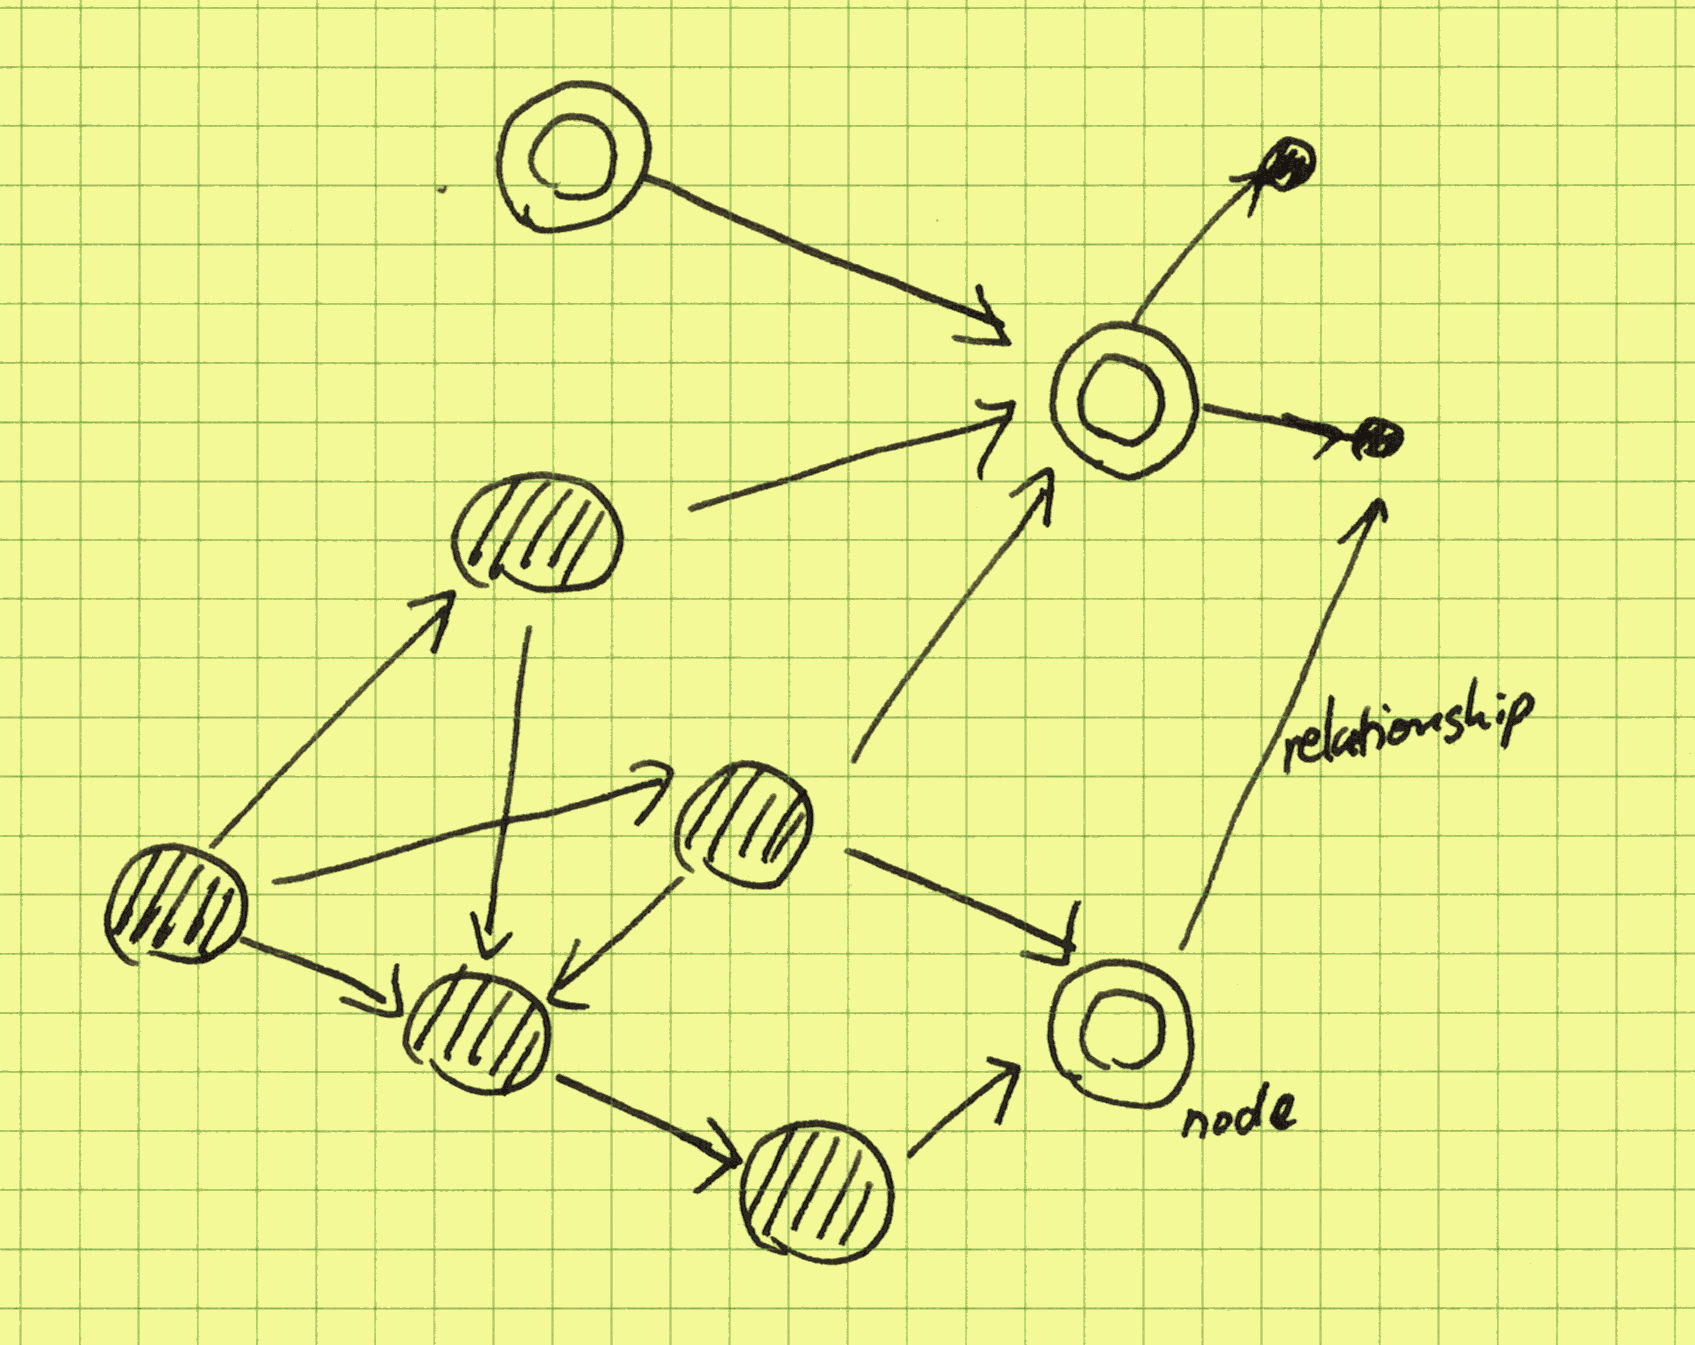 relationship
node